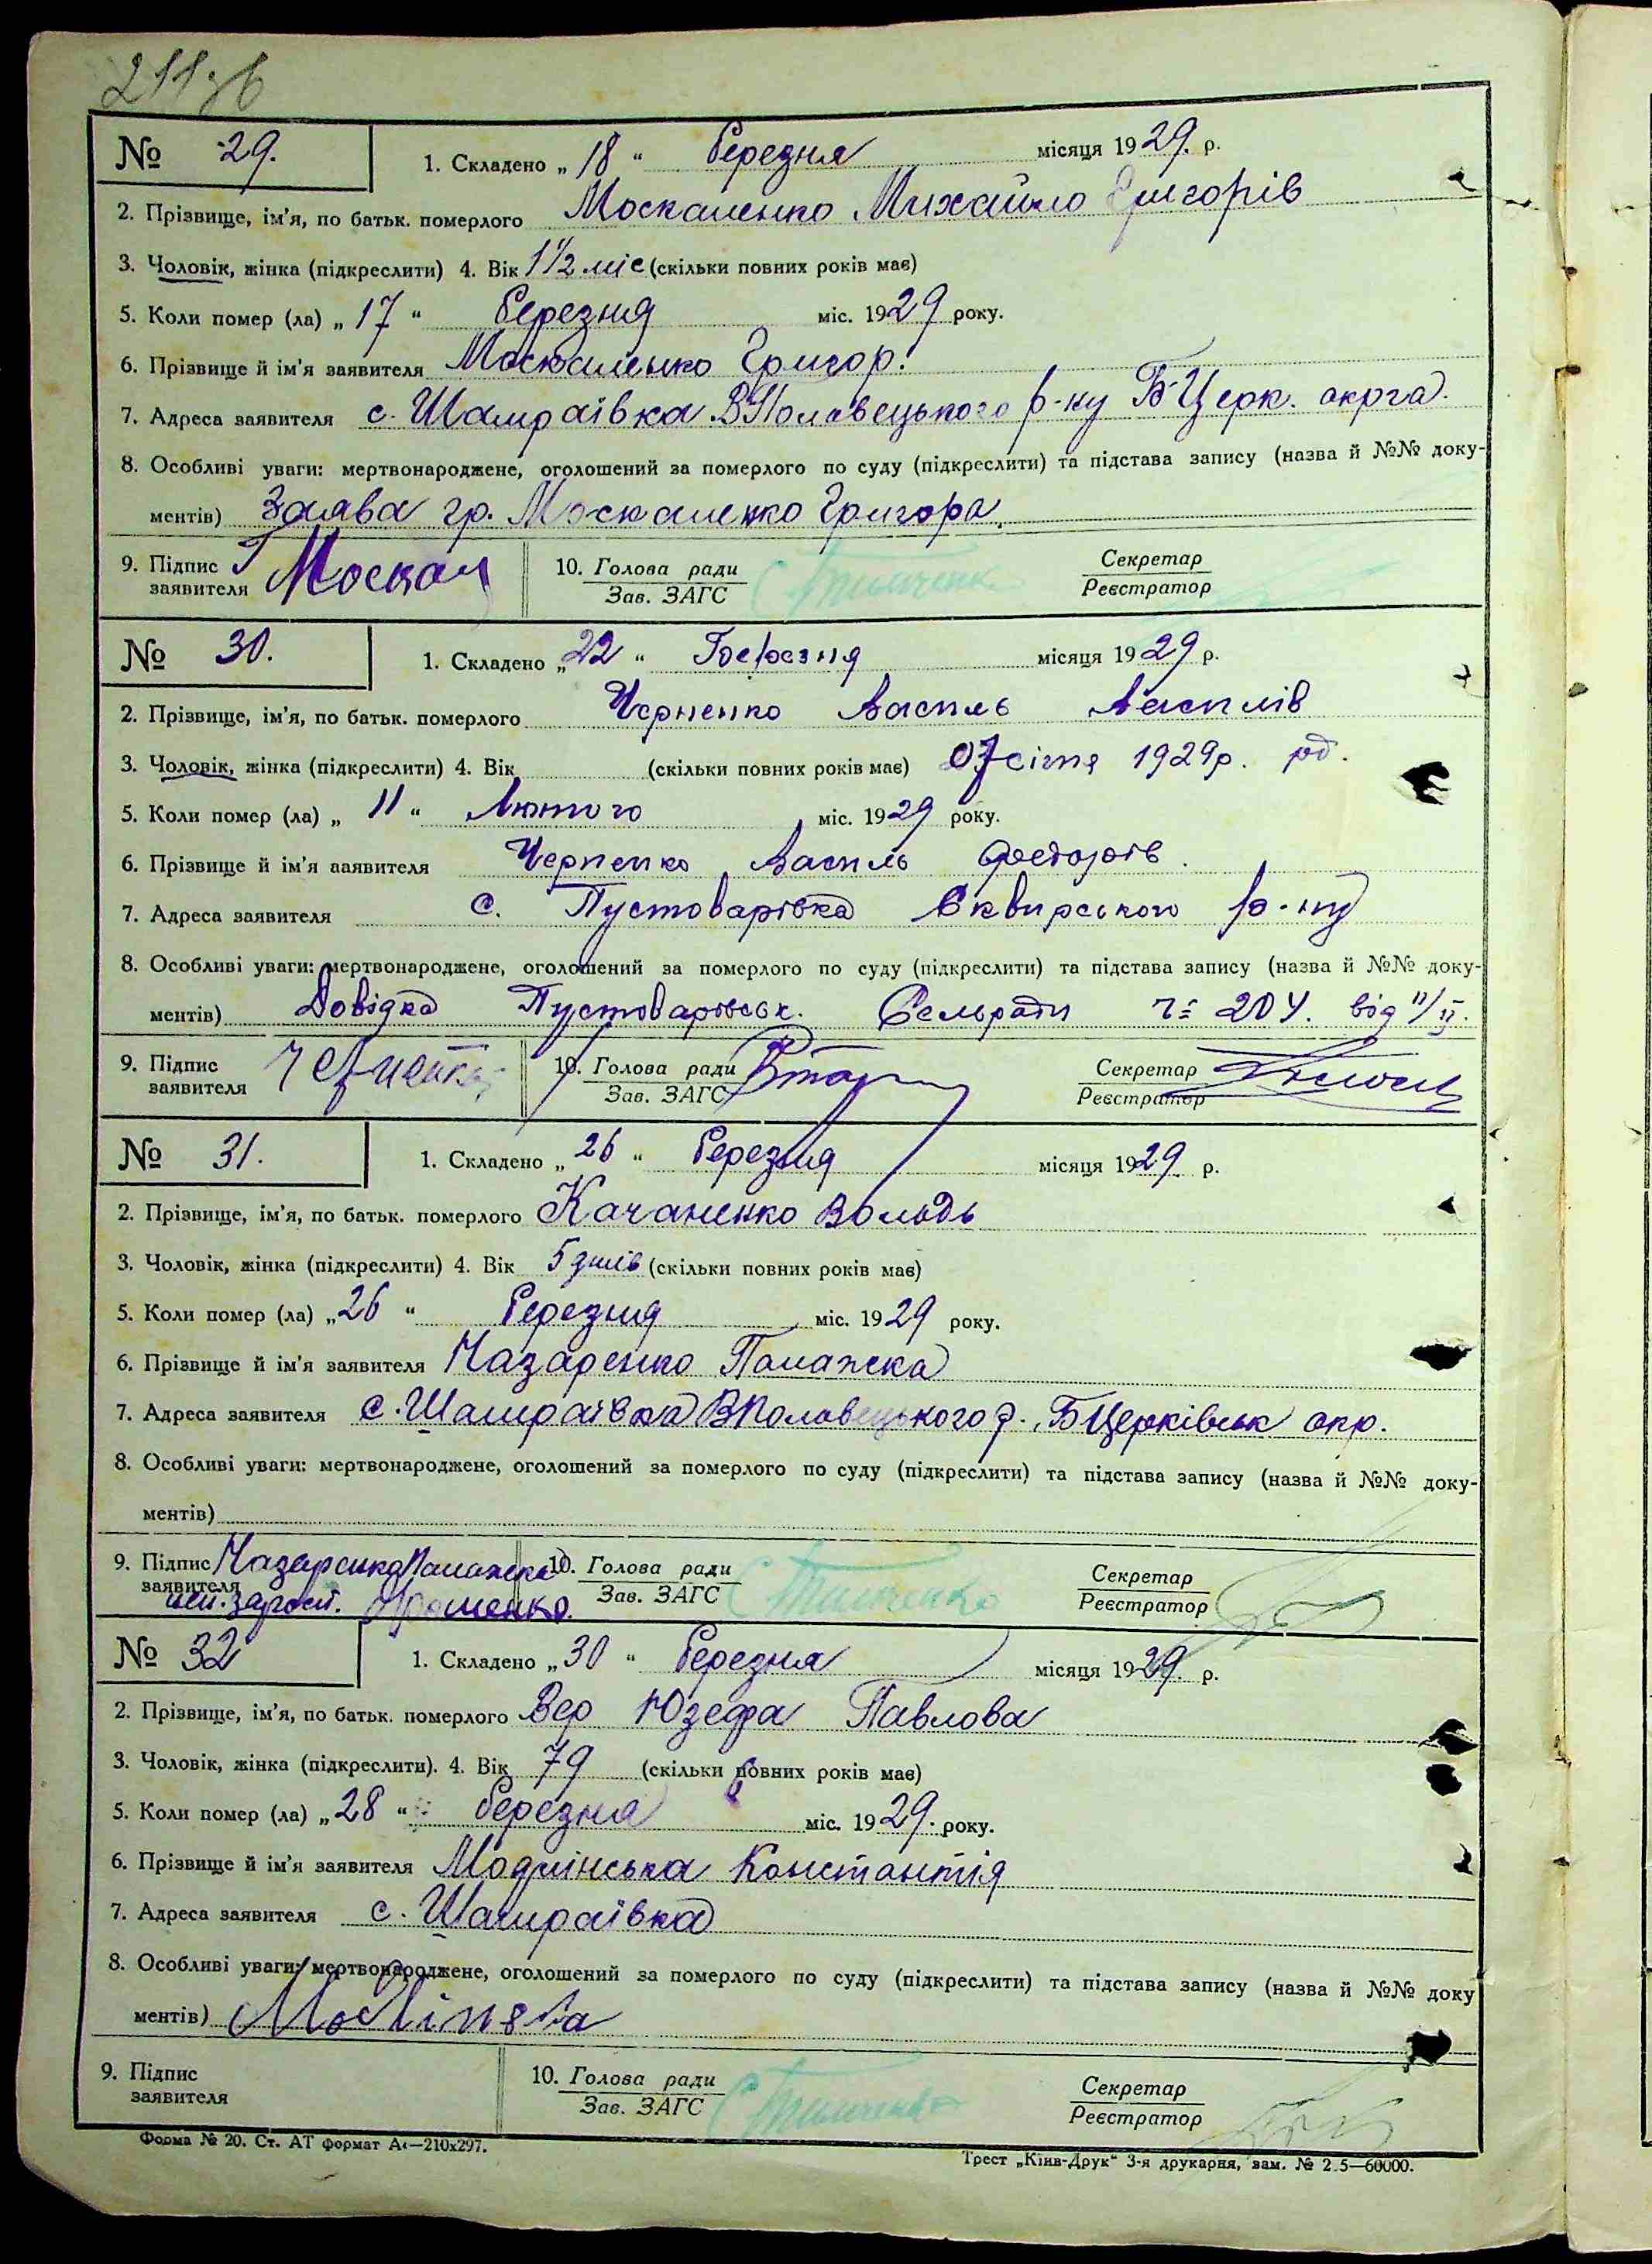 211 зв
№ 29. 1. Складено „18“ Березня місяця 1929. р.
2. Прізвище, ім'я, по батьк. померлого Москаленко Михайло Григорів
3. Чоловік, жінка (підкреслити) 4. Вік 1 1/2 міс (скільки повних років має)
5. Коли помер (ла) „17“ Березня міс. 1929 року.
6. Прізвище й ім'я заявителя Москаленко Григор.
7. Адреса заявителя с. Шамраївка В Половецького р-ну Б-Церк. окрга.
8. Особливі уваги: мертвонароджене, оголошений за померлого по суду (підкреслити) та підстава запису (назва й №№ доку-
ментів) Заява гр. Москаленко Григора.
9. Підпис заявителя Москал 10. Голова ради Секретар
Зав. ЗАГС Реєстратор
№ 30. 1. Складено „22“ Березня місяця 1929 р.
2. Прізвище, ім'я, по батьк. померлого Черненко Василь Василів
3. Чоловік, жінка (підкреслити) 4. Вік (скільки повних років має) 1929р.
5. Коли помер (ла) „11“ Лютого міс. 1929 року.
6. Прізвище й ім'я ааявителя Черненко Василь
7. Адреса заявителя с. Пустоварівка Сквирського р-ну
8. Особливі уваги: мертвонароджене, оголошений за померлого по суду (підкреслити) та підстава запису (назва й №№ доку-
ментів) Довідка Пустоварівськ. Сельради ч= 204. від 11/II.
9. Підпис заявителя 10. Голова ради Секретар
Зав. ЗАГС Реєстратор
№ 31. 1. Складено „26“ Березня місяця 1929 р.
2. Прізвище, ім'я, по батьк. померлого Качаненко Вольдь
3. Чоловік, жінка (підкреслити) 4. Вік 5 днів (скільки повних років має)
5. Коли помер (ла) „26“ Березня міс. 1929 року.
6. Прізвище й ім'я заявителя Назаренко Палажка
7. Адреса заявителя с. Шамраївка ВПоловецького р. БЦерківськ окр.
8. Особливі уваги: мертвонароджене, оголошений за померлого по суду (підкреслити) та підстава запису (назва й №№ доку-
ментів)
9. Підпис Назаренко Палажка 10. Голова ради Секретар
заявителя Зав. ЗАГС Реєстратор
№ 32 1. Складено „30“ Березня місяця 1929. р.
2. Прізвище, ім'я, по батьк. померлого Вер Юзефа Павлова
3. Чоловік, жінка (підкреслити). 4. Вік 79 (скільки повних років має)
5. Коли помер (ла) „28“ березня міс. 1929. року.
6. Прізвище й ім'я заявителя Модлінська Константія
7. Адреса заявителя с. Шамраївка
8. Особливі уваги: мертвонароджене, оголошений за померлого по суду (підкреслити) та підстава запису (назва й №№ доку
ментів) Modlińska
9. Підпис 10. Голова ради Секретар
заявителя Зав. ЗАГС Реєстратор
Форма № 20. Ст. АТ формат А4—210х297.
Трест „Київ-Друк“ 3-я друкарня, зам. № 2.5—60000.